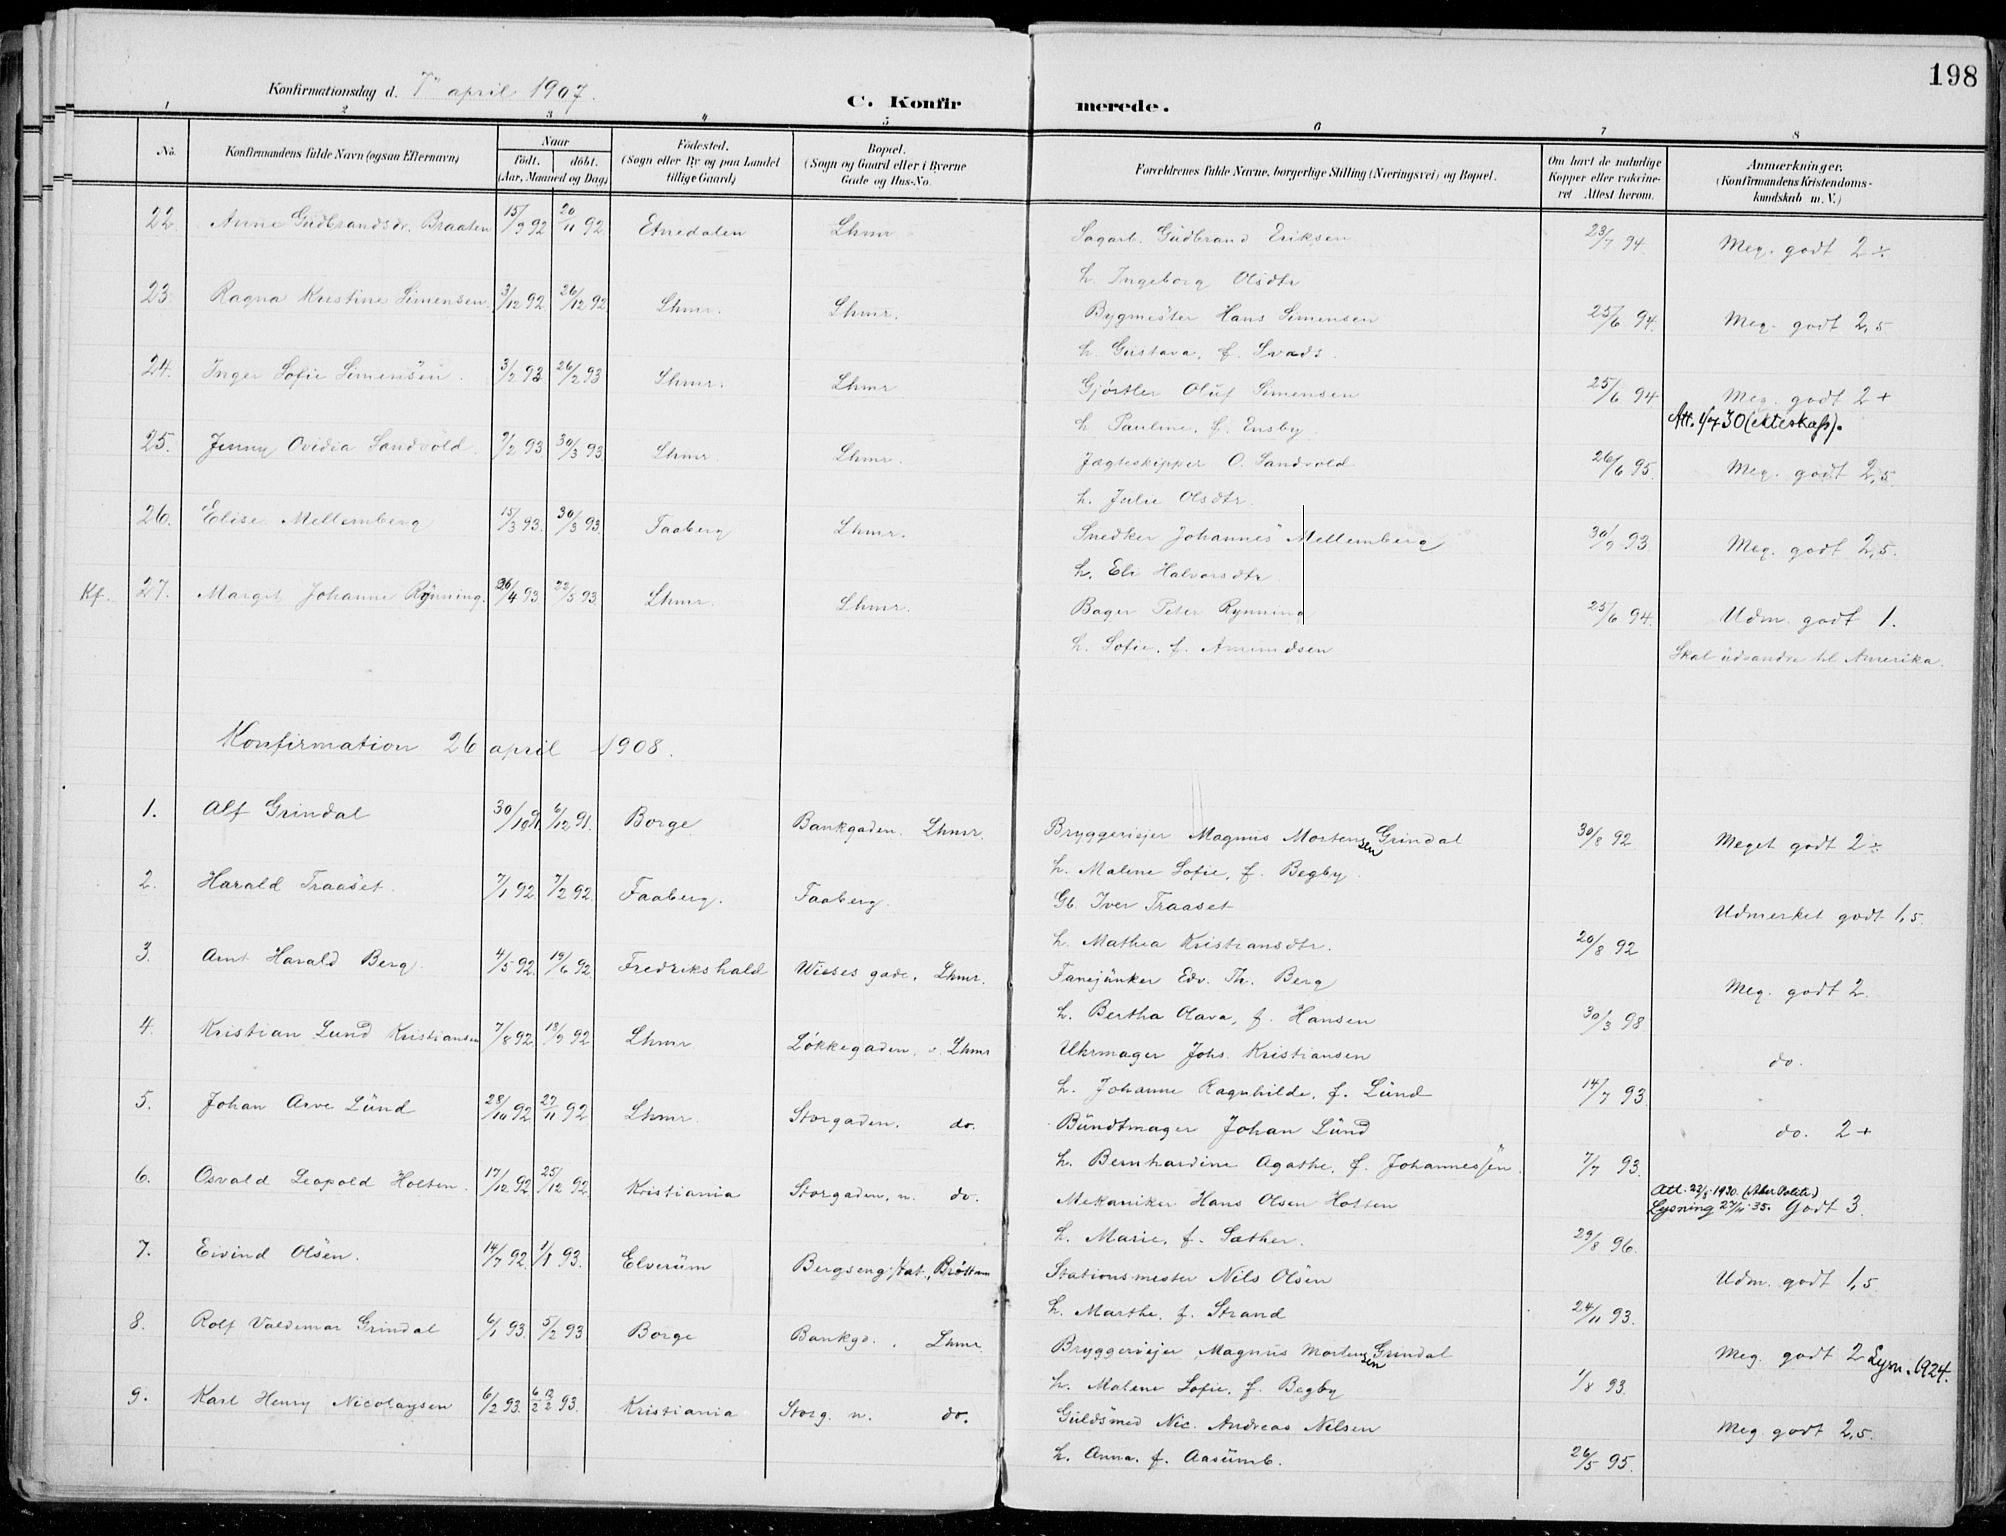 198
Konfirmationsdag d. 7de april 1907.
C. Konfirmerede.
1 2 3 4 5 6 7 8
No. Konfirmandens fulde Navn (ogsaa Efternavn) Naar født. døbt. (Aar, Maaned og Dag) Fødested. (Sogn eller By og paa Landet tillige Gaard) Bopæl. (Sogn og Gaard eller i Byerne Gade og Hus-No. Forældrenes fulde Navne, borgerlige Stilling (Næringsvei) og Bopæl. Om havt de naturlige Kopper eller vakcineret Attest herom. Anmærkninger. (Konfirmandens Kristendomskundskab m. V.)
22 Anne Gudbrandsdr. Braaten 15/9 92 20/11 92 Etnedalen Lhmr Sagarb. Gudbrand Eriksen 23/7 94. Meg. godt 2÷
h. Ingeborg Olsdtr
23. Ragna Kristine Simensen. 3/12 92 26/12 92 Lhmr. Lhmr. Bygmester Hans Simensen 25/6 94. Meg. godt 2,5
h. Gustava, f. Svads.
24. Inger Sofie Simensen. 3/2 93 26/2 93 Lhmr. Lhmr Gjørtler Oluf Simensen 25/6 94 Meg. godt 2+
h. Pauline, f. Ensby. Att. 1/7 30 (ekteskap).
25. Jenny Ovidia Sandvold. 9/2 93 30/3 93 Lhmr. Lhmr. Jægteskipper O. Sandvold 26/6 95. Meg. godt 2,5
h. Julie Olsdtr.
26. Elise Mellemberg 15/3 93. 30/3 93. Faaberg Lhmr. Snedker Johannes Mellemberg 30/9 93 Meg. godt 2,5.
h. Eli Halvorsdtr
Kf. 27. Margit Johanne Rynning. 30/4 93 22/5 93 Lhmr. Lhmr. Bager Peter Rynning 25/6 94. Udm. godt 1.
h. Sofie, f. Amundsen Skal udvandre til Amerika.
Konfirmation 26 april 1908.
1. Alf Grindal 30/10 91 6/12 91. Borge Bankgaden. Lhmr. Bryggeriejer Magnus Mortensen Grindal 30/8 92 Meget godt 2÷
h. Malene Sofie, f. Begby.
2. Harald Traaset. 7/1 92 7/2 92. Faaberg. Faaberg. Gb. Iver Traaset Udmerket godt 1,5.
h. Mathea Kristiansdtr. 20/8 92
3. Arnt Harald Berg. 4/5 92. 19/6 92. Fredrikshald Wieses gade, Lhmr. Fanejunker Edv. Th. Berg Meg. godt 2.
h. Bertha Olava, f. Hansen 30/3 98
4. Kristian Lund Kristiansen 7/8 92 18/9 92 Lhmr Løkkegaden, v. Lhmr Uhrmager Johs. Kristiansen do.
h. Johanne Ragnhilde, f. Lund 14/7 93.
5. Johan Arve Lund 28/10 92 27/11 92 Lhmr. Storgaden. do. Bundtmager Johan Lund do. 2+
h. Bernhardine Agathe, f. Johannessen. 7/7 93.
6. Osvald Leopold Holten. 17/12 92 25/12 92. Kristiania Storgaden, n. do. Mekaniker Hans Olsen Holten Att. 22/8 1930. (Aker Politi) Lysning 27/11 35. Godt 3.
h. Marie, f. Sæther. 29/8 96.
7. Eivind Olsen. 14/7 92. 1/1 93. Elverum Bergseng stat., Brøttum Stationsmester Nils Olsen Udm. godt 1,5
h. Marthe, f. Strand 24/11 93.
8. Rolf Valdemar Grindal 6/1 93. 5/2 93 Borge Bankgd. Lhmr. Bryggeriejer Magnus Mortensen Grindal Meg. godt 2 Lysn. 1924.
h. Malene Sofie, f. Begby 1/8 93.
9. Karl Henry Nicolaysen 6/2 93. 12/2 93. Kristiania Storg. n. do. Guldsmed Nic. Andreas Nilsen Meg. godt 2,5.
h. Anna, f. Aasumb. 26/5 95.